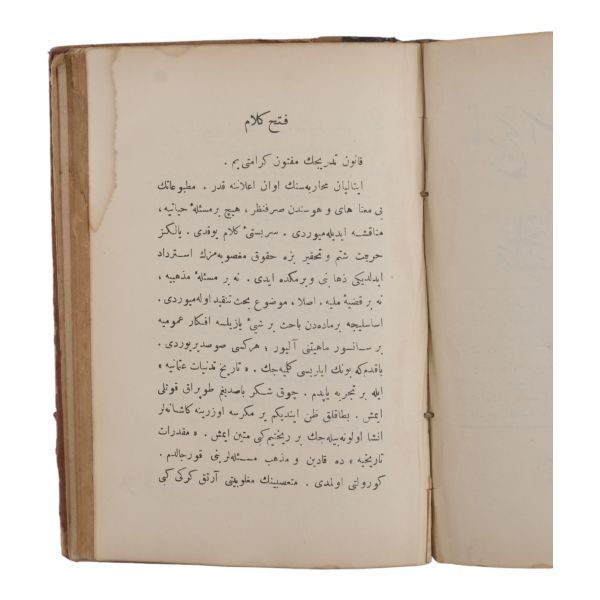 فتح كلام
قانون تدريجك مفتون كرامتى يم .
ايتاليان محاربه سنك اوان اعلاننه قدر . مطبوعاتك
بى معنا هاى و هوسندن صرفنظر ، هيچ بر مسئلهٔ حياتيه ،
مناقشه ايديله ميوردى . سربستئ كلام يوقدى . يالكز
حريت شتم و تحقير بزه حقوق مغصوبه مزك استرداد
ايدلديكى ذهابنى ويرمكده ايدى . نه بر مسئلهٔ مذهبيه ،
نه بر قضيهٔ مليه ، اصلا ، موضوع بحث تنقيد اوله ميوردى .
اساسليجه بر ماده دن باحث بر شئ يازيلسه افكار عموميه
بر سانسور ماهيتنى آليور ؛ هركسى صوصديريوردى .
باقدم كه بونك ايلريسى كليه جك . « تاريخ تدنيات عثمانيه »
ايله بر تجربه ياپدم . چوق شكر باصديغم طوپراق قوتلى
ايمش . بطاقلق ظن ايتديكم بر مكرسه اوزرينه كاشانه لر
انشا اولونه بيله جك بر ريختيم كبى متين ايمش . « مقدرات
تاريخيه » ده قادين و مذهب مسئله لرينى قورجالدم .
كورولتى اولمدى . متعصبينك مغلوبيتى آرتق كركى كبى